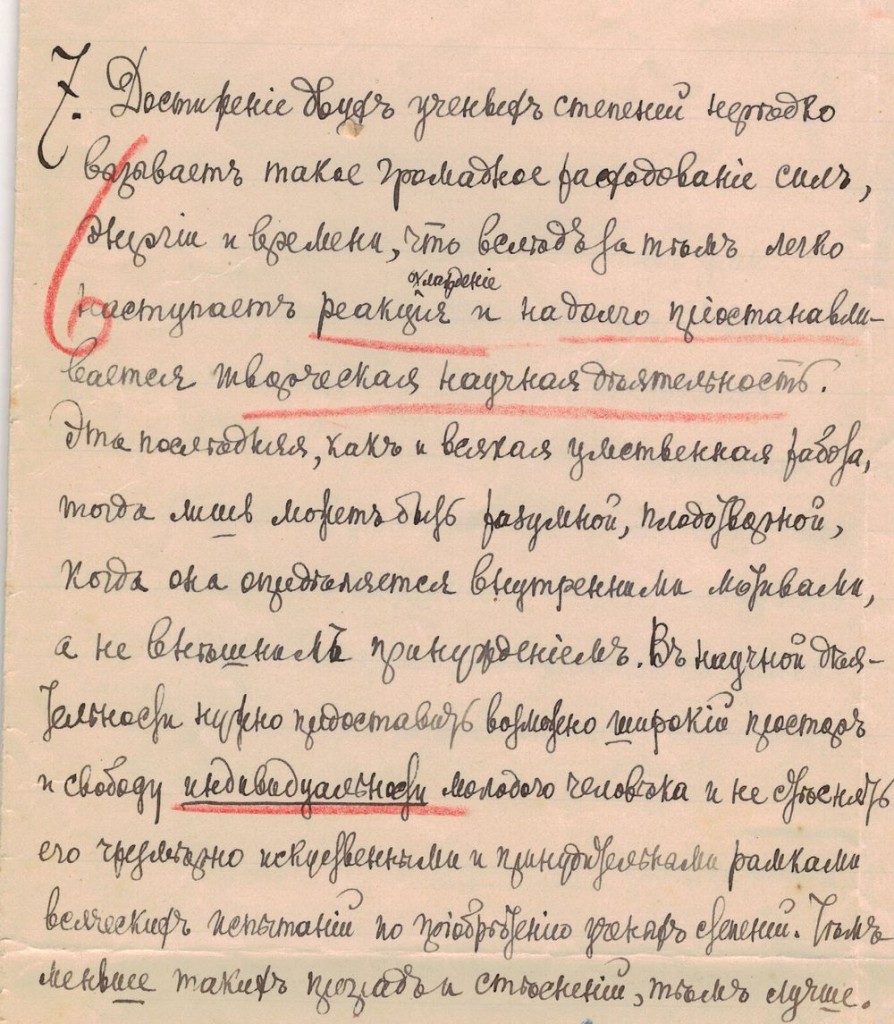 7. Достиженіе двухъ ученыхъ степеней нерѣдко
вызываетъ такое громадное расходованіе силъ,
энергіи и времени, что вслѣдъ за тѣмъ легко
охлажденіе
наступаетъ реакція и надолго пріостанавли-
вается творческая научная дѣятельность.
Эта послѣдняя, какъ и всякая умственная работа,
тогда лишь можетъ быть разумной, плодотворной,
когда она опредѣляется внутренними мотивами,
а не внѣшнимъ принужденіемъ. Въ научной дѣя-
тельности нужно предоставить возможно широкій просторъ
и свободу индивидуальности молодого человѣка и не стѣснять
его чрезмѣрно искусственными и принудительными рамками
всяческихъ испытаній по пріобрѣтенію ученыхъ степеней. Чѣмъ
меньше такихъ преградъ и стѣсненій, тѣмъ лучше.